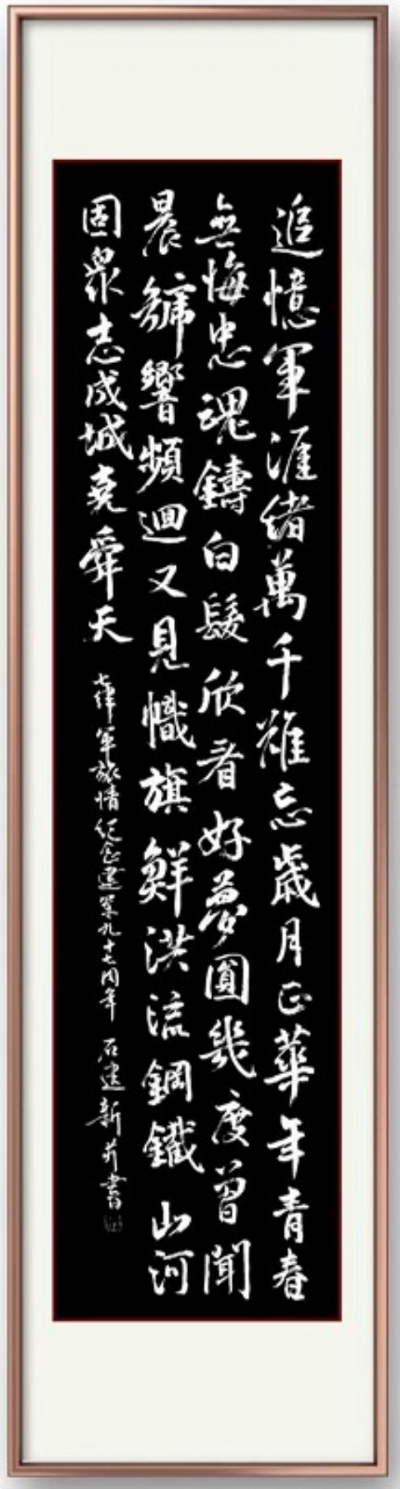 追憶軍涯緒萬千難忘歲月正華年青春
無悔忠魂鑄白髮欣看好夢圓幾度曾聞
晨號響頻迴又見幟旗鮮洪流鋼鐵山河
固眾志成城堯舜天
七律軍旅情紀念建軍九十七周年 石建新并書